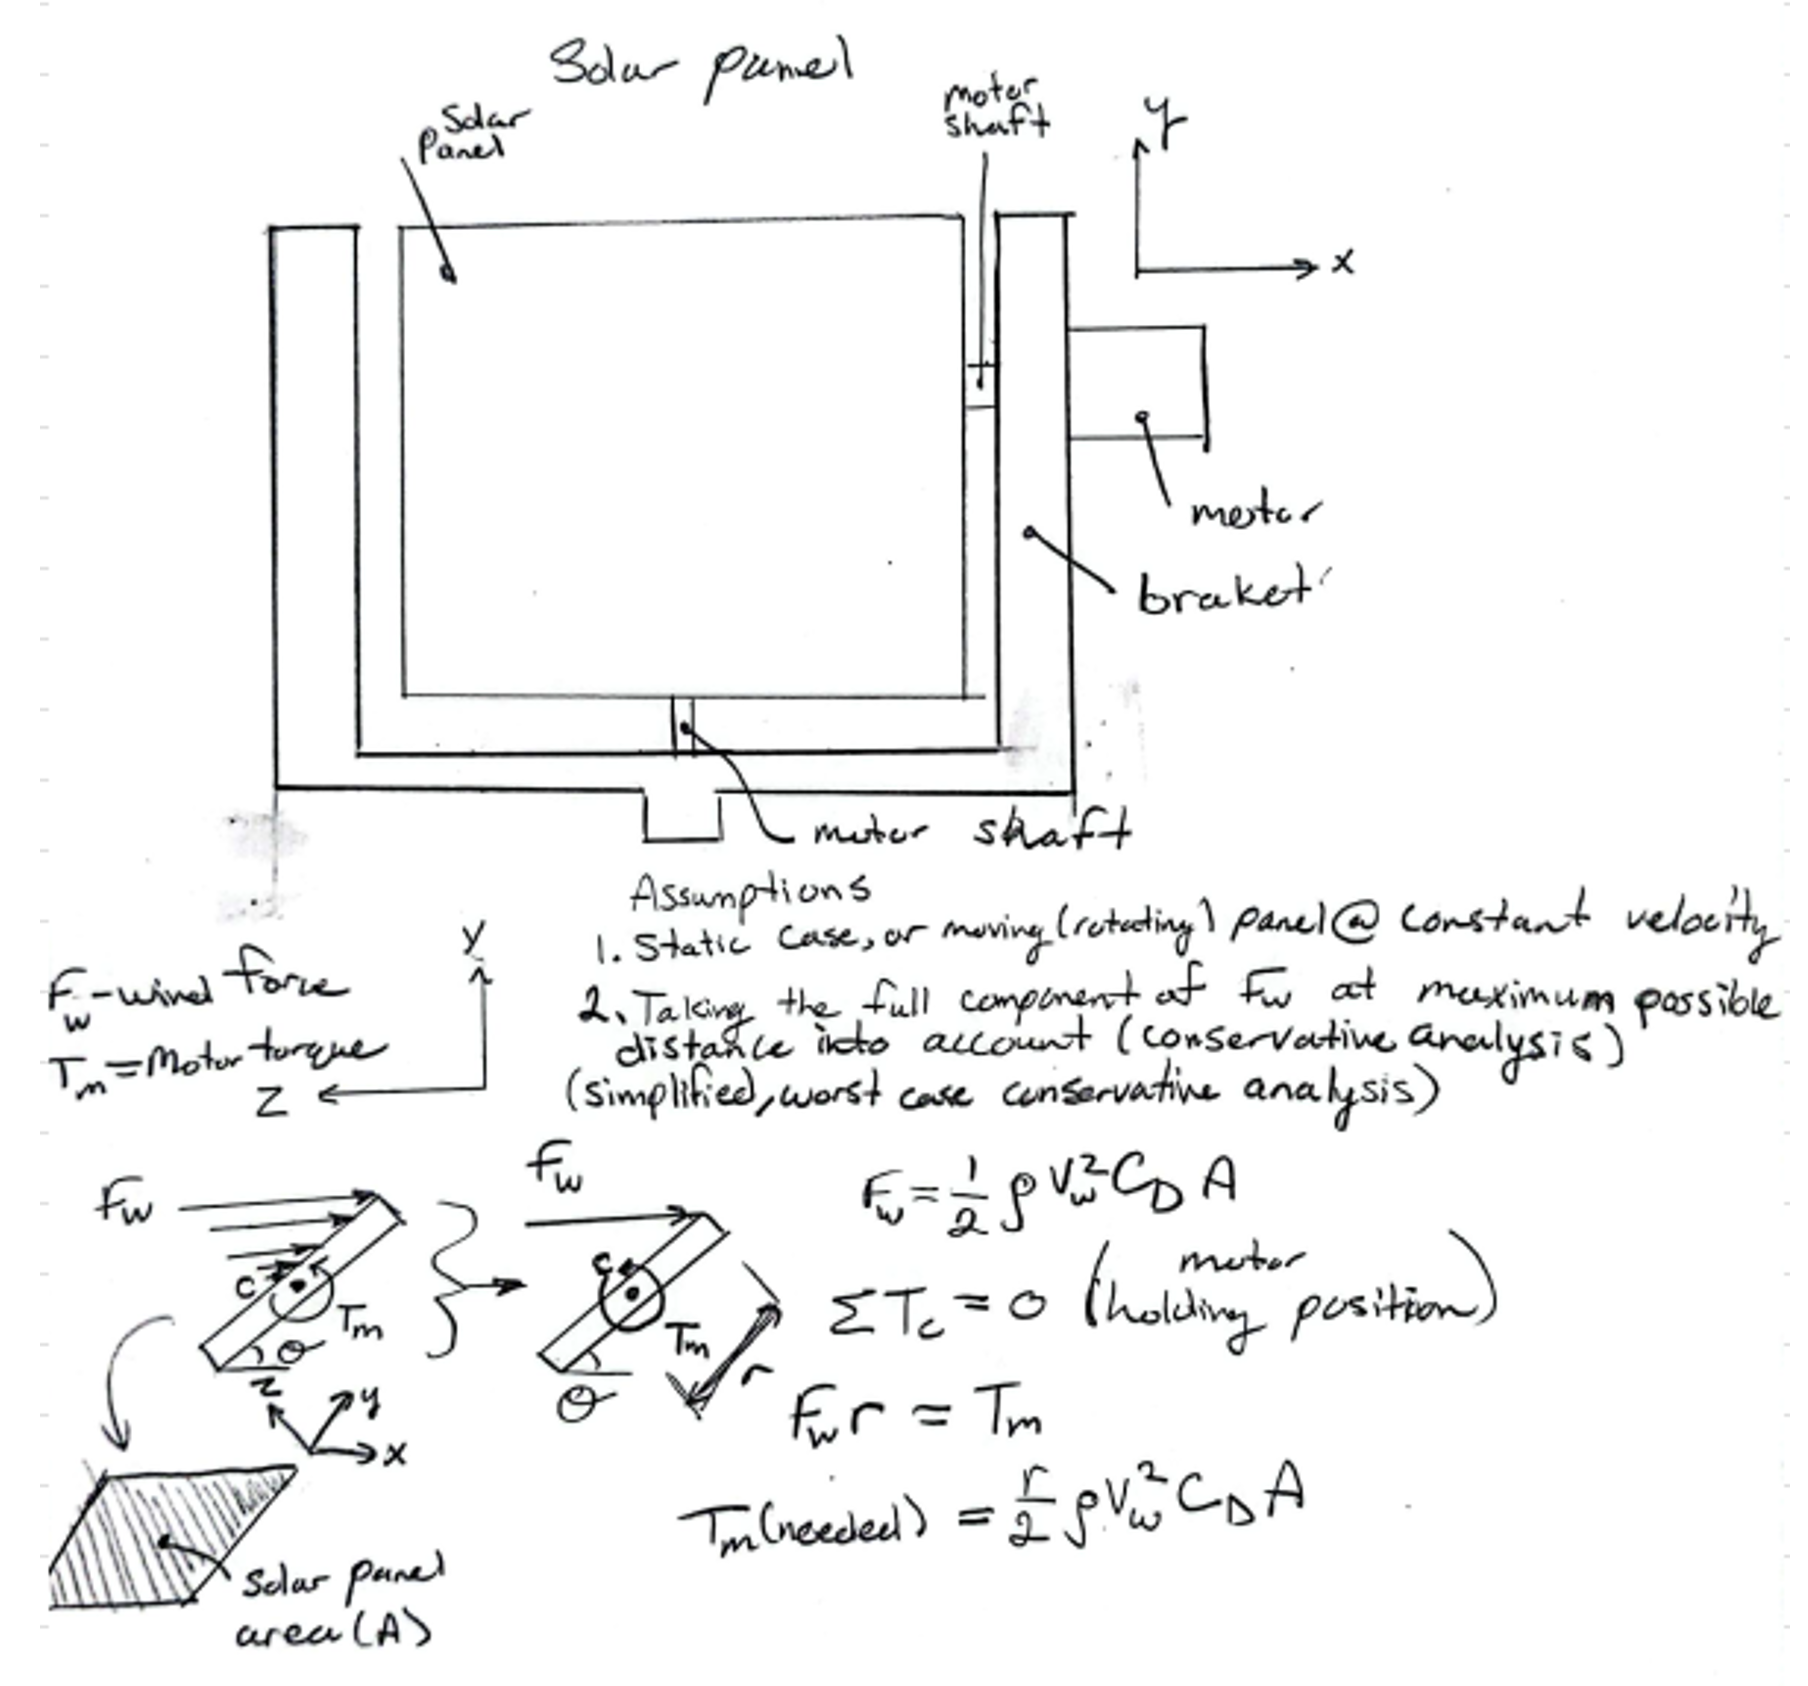 Solar panel
Solar
Panel
motor
shaft
y
x
motor
braket
motor shaft
Assumptions
1. Static case, or moving (rotating) panel @ constant velocity
2. Taking the full component of Fw at maximum possible
distance into account (conservative analysis)
(simplified, worst case conservative analysis)
Fw - wind force
Tm = Motor torque
y
z
Fw
c
Tm
θ
Fw
c
Tm
θ
r
z
y
x
Solar panel
area (A)
Fw = 1/2 ρ Vw² CD A
ΣTc = 0 (motor holding position)
Fw r = Tm
Tm (needed) = r/2 ρ Vw² CD A